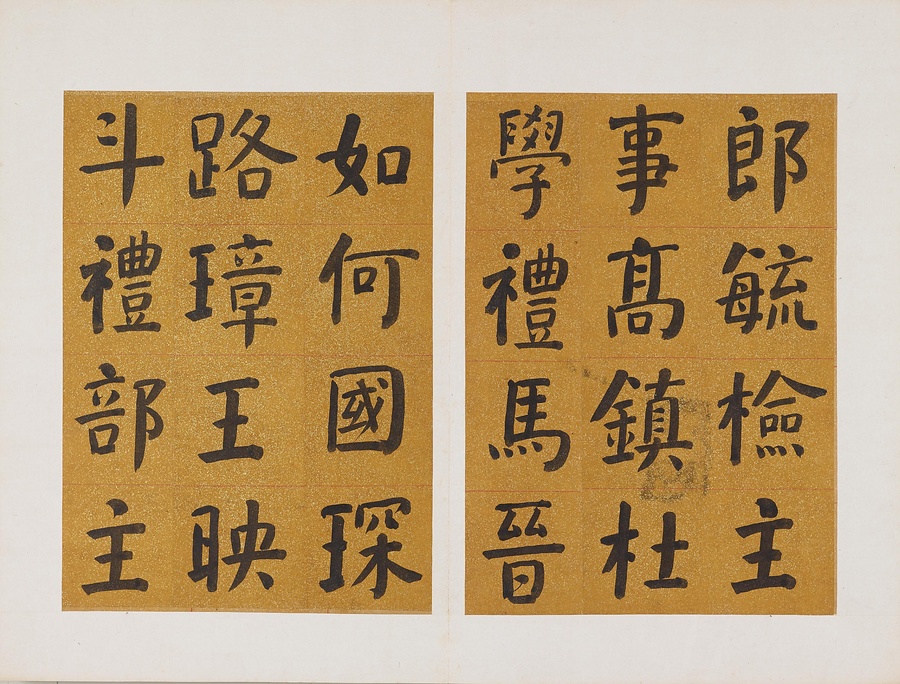 郎毓檢主
事高鎮杜
學禮馬晉
如何國琛
路璋王映
斗禮部主